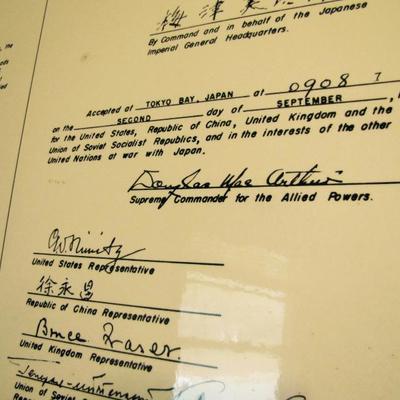 梅津美
By Command and in behalf of the Japanese
Imperial General Headquarters.
Accepted at TOKYO BAY, JAPAN at 0908 I
on the SECOND day of SEPTEMBER,
for the United States, Republic of China, United Kingdom and the
Union of Soviet Socialist Republics, and in the interests of the other
United Nations at war with Japan.
Douglas MacArthur
Supreme Commander for the Allied Powers.
CW Nimitz
United States Representative
徐永昌
Republic of China Representative
Bruce Fraser
United Kingdom Representative
Union of Soviet